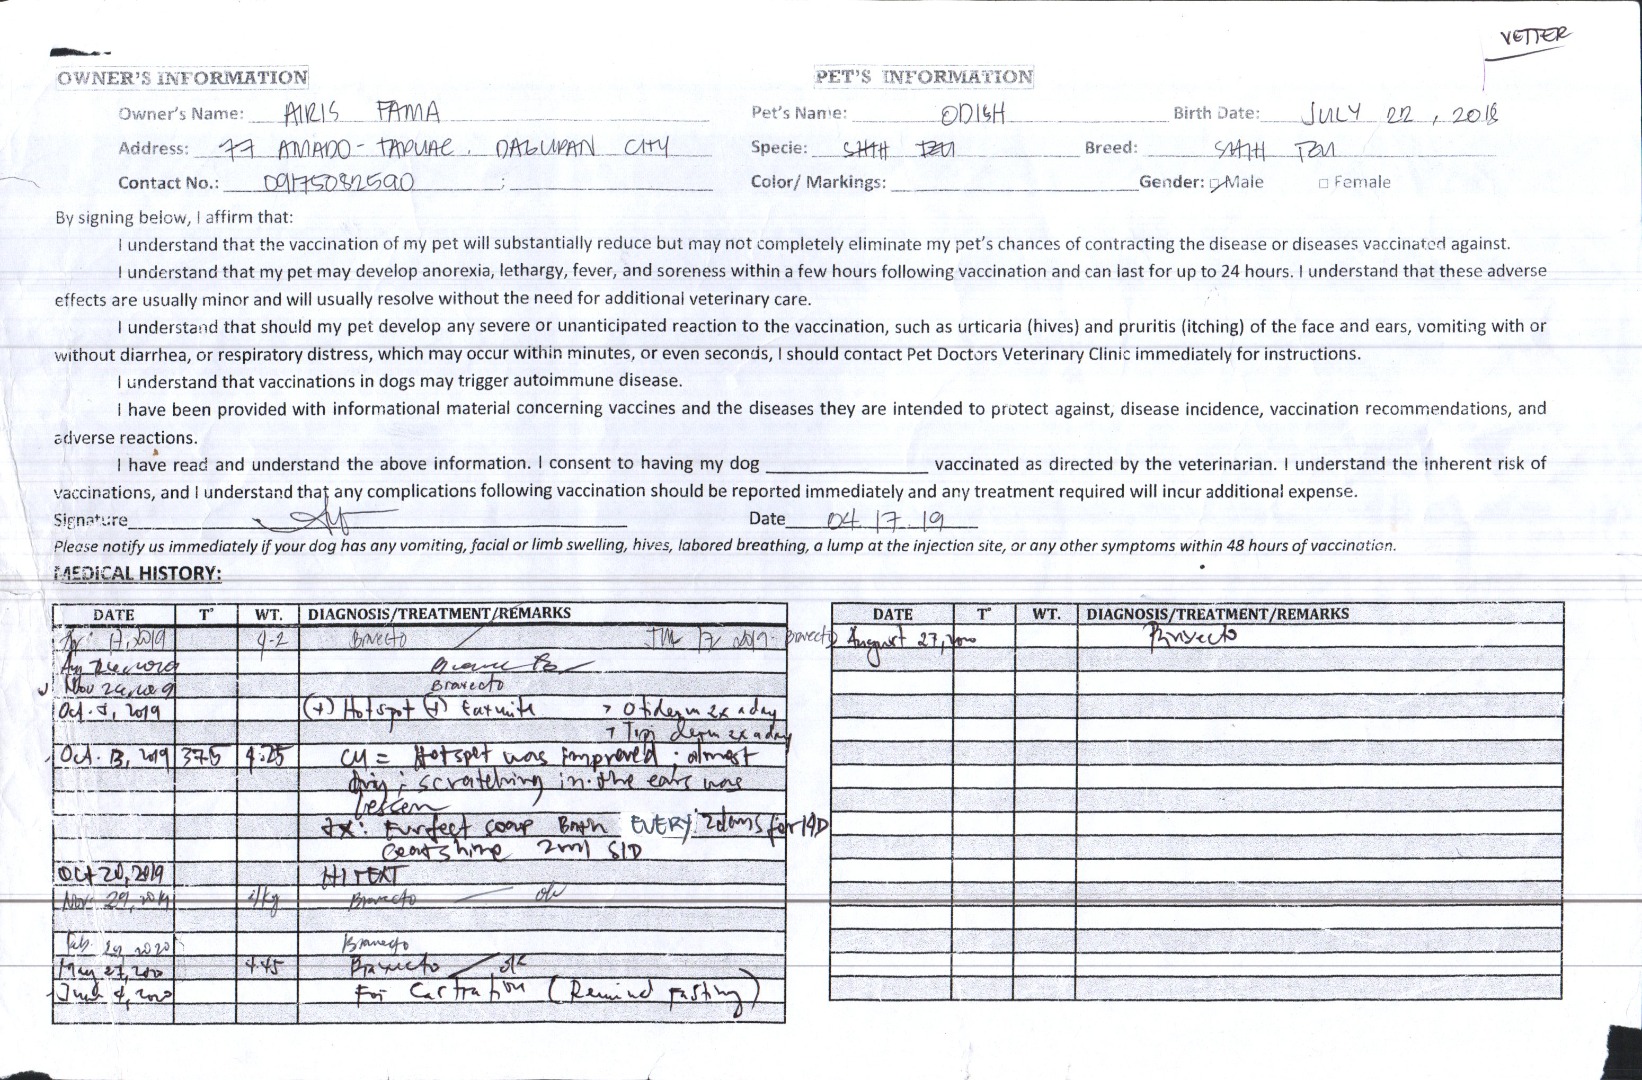 VETTER
OWNER'S INFORMATION
PET'S INFORMATION
Owner's Name: AIRIS FAMA
Pet's Name: ODISH Birth Date: JULY 22, 2018
Address: 77 AMADO - TAPUAC. DAGUPAN CITY
Specie: SHIH TZU Breed: SHIH TZU
Contact No.: 09175082590 ;
Color/ Markings: Gender: Male Female
By signing below, I affirm that:
I understand that the vaccination of my pet will substantially reduce but may not completely eliminate my pet's chances of contracting the disease or diseases vaccinated against.
I understand that my pet may develop anorexia, lethargy, fever, and soreness within a few hours following vaccination and can last for up to 24 hours. I understand that these adverse
effects are usually minor and will usually resolve without the need for additional veterinary care.
I understand that should my pet develop any severe or unanticipated reaction to the vaccination, such as urticaria (hives) and pruritis (itching) of the face and ears, vomiting with or
without diarrhea, or respiratory distress, which may occur within minutes, or even seconds, I should contact Pet Doctors Veterinary Clinic immediately for instructions.
I understand that vaccinations in dogs may trigger autoimmune disease.
I have been provided with informational material concerning vaccines and the diseases they are intended to protect against, disease incidence, vaccination recommendations, and
adverse reactions.
I have read and understand the above information. I consent to having my dog vaccinated as directed by the veterinarian. I understand the inherent risk of
vaccinations, and I understand that any complications following vaccination should be reported immediately and any treatment required will incur additional expense.
Signature
Date 04.17.19
Please notify us immediately if your dog has any vomiting, facial or limb swelling, hives, labored breathing, a lump at the injection site, or any other symptoms within 48 hours of vaccination.
MEDICAL HISTORY:
DATE T° WT. DIAGNOSIS/TREATMENT/REMARKS
17, 2019 4.2 Bravecto 17 2019 - Bravecto
Aug 2019
Nov Bravecto
Oct. 5, 2019 (+) Hotspot (+) Earmite > Otiderm 2x a day
> derm 2x a day
Oct. 13, 2019 37.5 4.25 CU = Hotspot was improved ; almost
; scratching in the ears was
lessen
Tx: Furfect soap Bath EVERY 2days for 14D
Coatshine 2ml SID
Oct 20, 2019 HI TEXT
Nov. 29, 2019 4kg Bravecto
Feb. 29, 2020 Bravecto
May 27, 2020 4.45 Bravecto
June 4, 2020 For Castration (Remind fasting)
DATE T° WT. DIAGNOSIS/TREATMENT/REMARKS
August 27, 2020 Bravecto